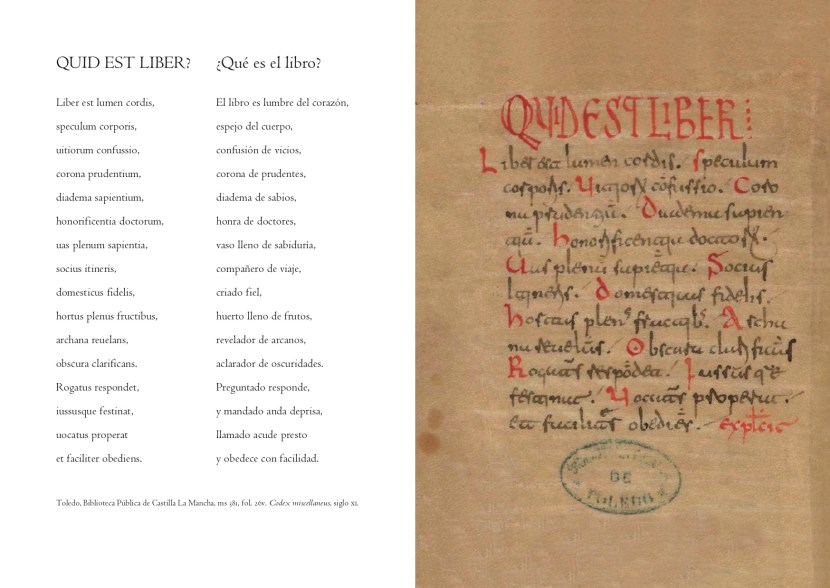 QUID EST LIBER?
Liber est lumen cordis,
speculum corporis,
uitiorum confussio,
corona prudentium,
diadema sapientium,
honorificentia doctorum,
uas plenum sapientia,
socius itineris,
domesticus fidelis,
hortus plenus fructibus,
archana reuelans,
obscura clarificans.
Rogatus respondet,
iussusque festinat,
uocatus properat
et faciliter obediens.
¿Qué es el libro?
El libro es lumbre del corazón,
espejo del cuerpo,
confusión de vicios,
corona de prudentes,
diadema de sabios,
honra de doctores,
vaso lleno de sabiduría,
compañero de viaje,
criado fiel,
huerto lleno de frutos,
revelador de arcanos,
aclarador de oscuridades.
Preguntado responde,
y mandado anda deprisa,
llamado acude presto
y obedece con facilidad.
Toledo, Biblioteca Pública de Castilla La Mancha, ms 381, fol. 26v. Codex miscellaneus, siglo XI.
QUID EST LIBER
Liber est lumen cordis. Speculum
corporis. Uitiorum cōfussio. Coro
na prudentiū. Diadema sapien
tiū. honorificentia doctorum.
Uas plenū sapientia. Socius
Itineris. Domesticus fidelis.
hortus plen' fructib'. Archa
na reuelās. Obscura clarificās
Rogatus respōdet. Iussus que
festinat. Uocatus properat.
et faciliter obediēs. explicit
DE
TOLEDO